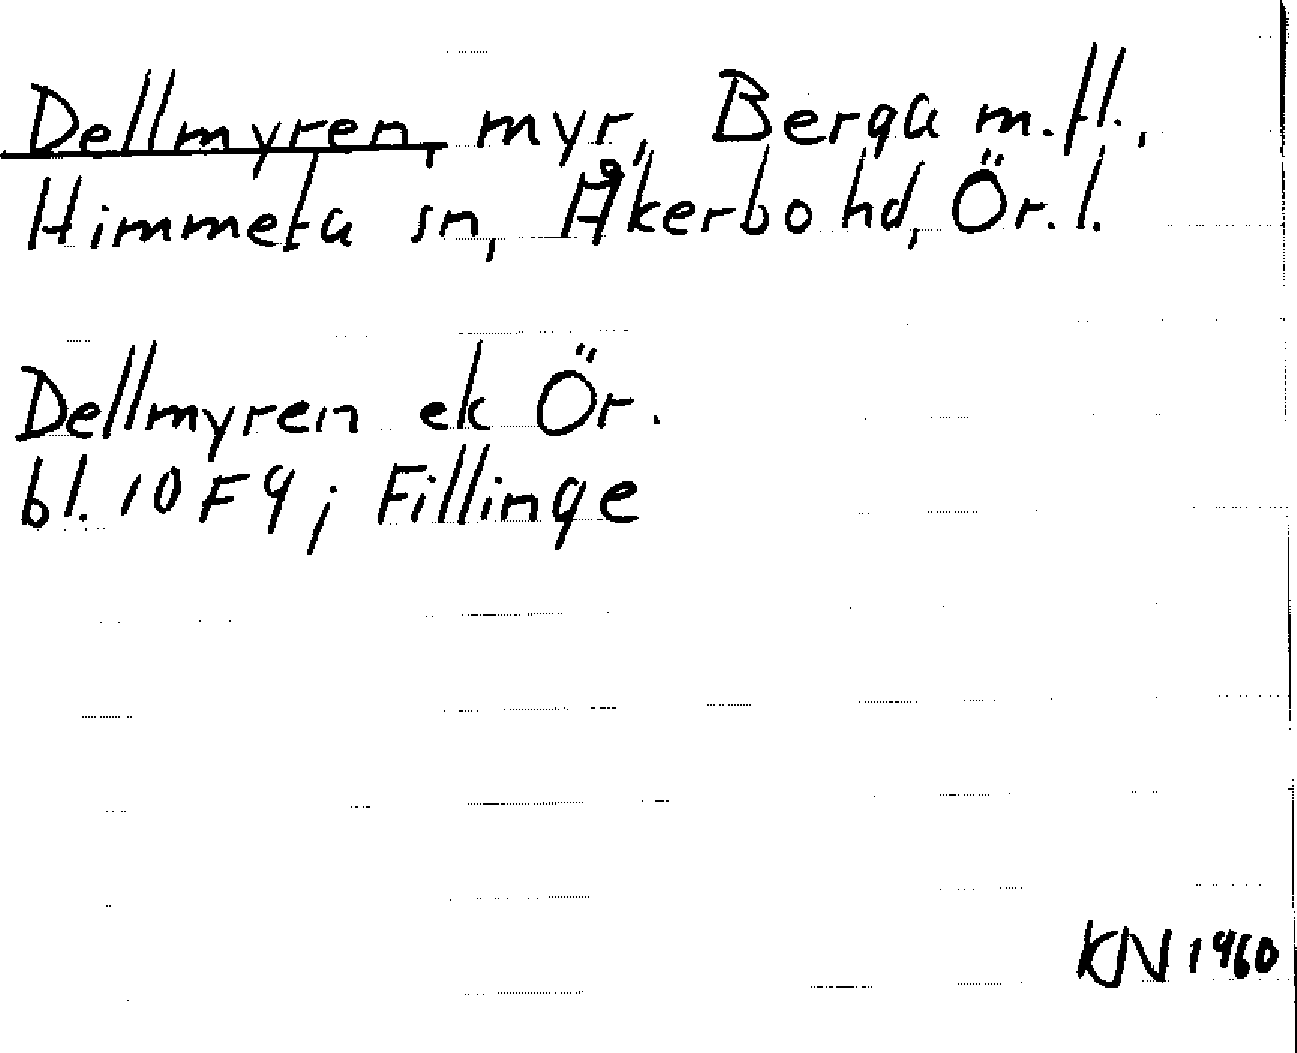 Dellmyren, myr, Berga m.fl.,
Himmeta sn, Åkerbo hd, Ör. l.
Dellmyren ek Ör.
bl. 10 F 9; Fillinge
KN 1960